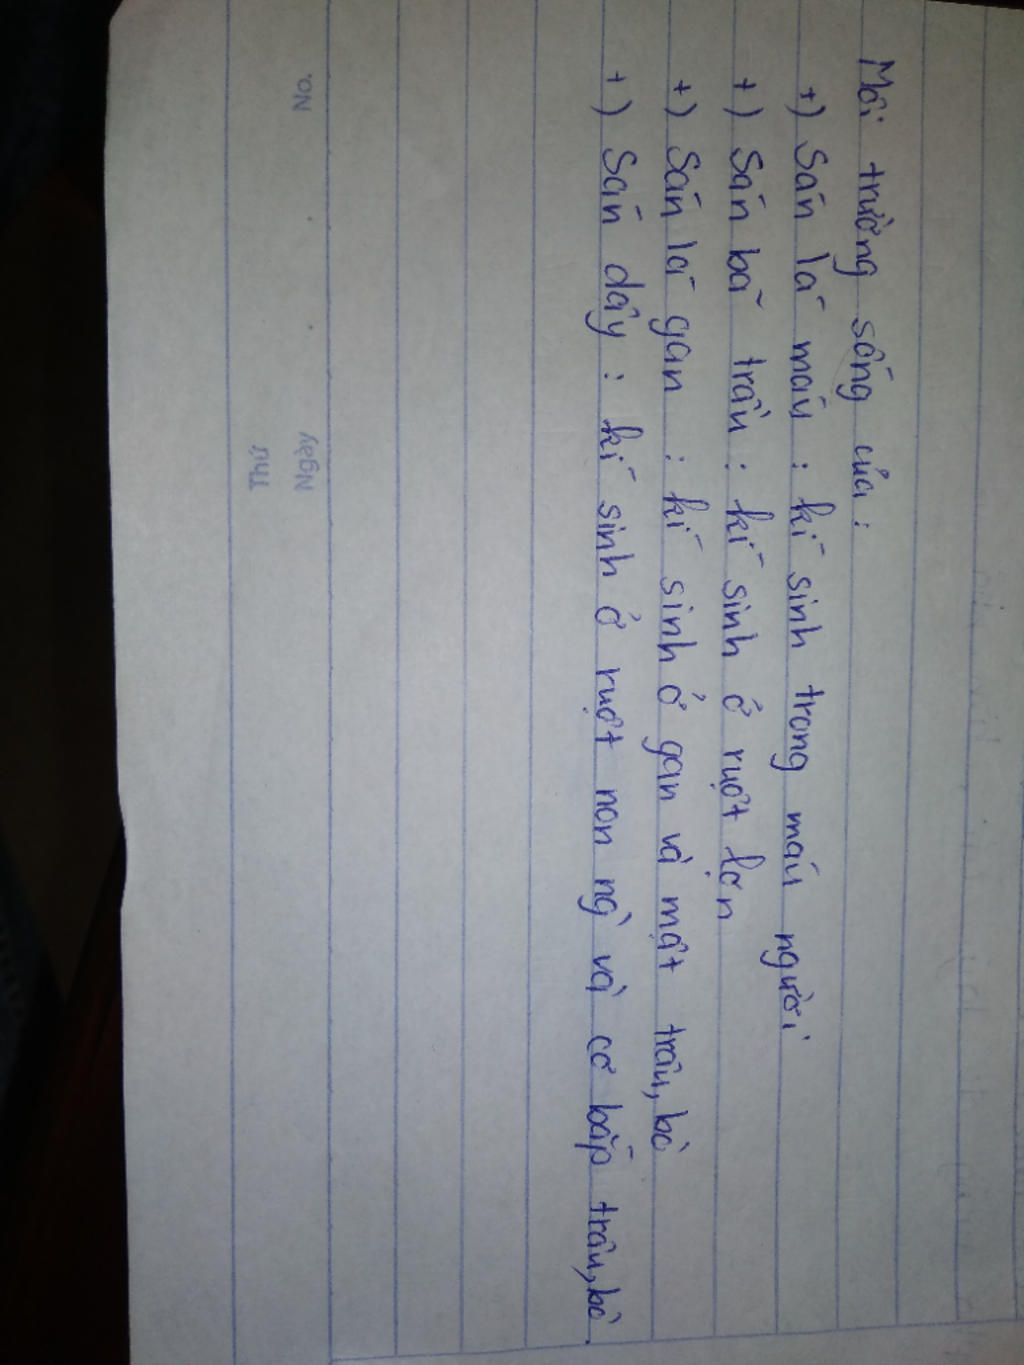 Môi trường sống của:
+) Sán lá máu : kí sinh trong máu người
+) Sán bã trầu : kí sinh ở ruột lợn
+) Sán lá gan : kí sinh ở gan và mật trâu, bò
+) Sán dây : kí sinh ở ruột non ng` và cơ bắp trâu, bò.
Thứ
Ngày
No.